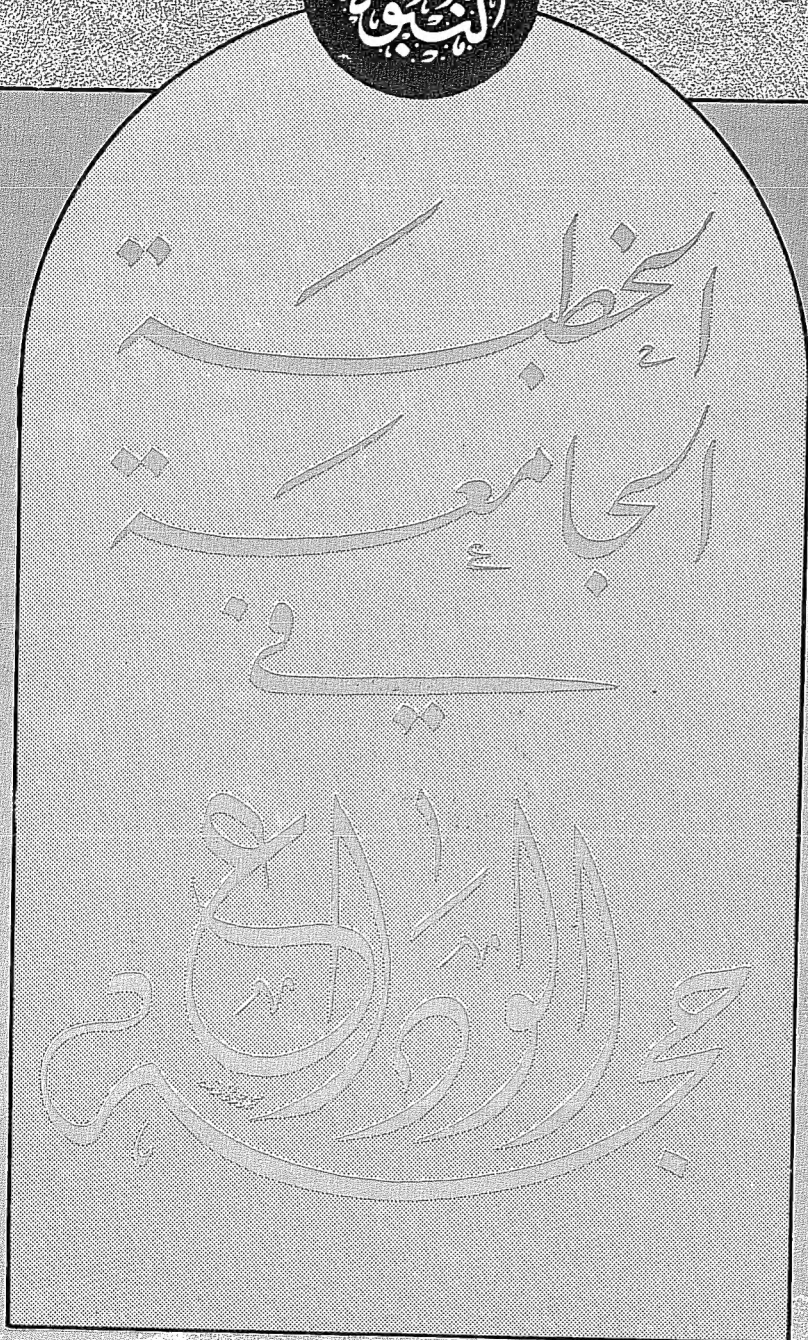 النبوة
الخطبة
الجامعة
في
حجة الوداع